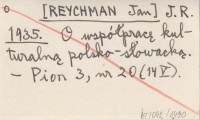 [REYCHMAN Jan] J.R.
1935. O współpracę kul-
turalną polsko-słowacką.
- Pion 3, nr 20 (14 V).